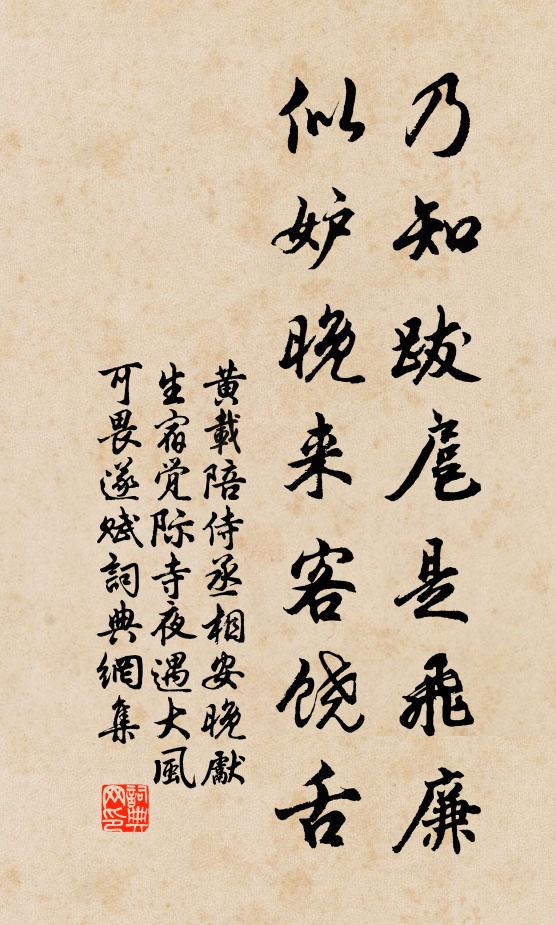 乃知跋扈是飛廉
似妒晚来客饶舌
黄載陪侍丞相安晚獻
生宿觉际寺夜遇大風
可畏遂赋詞典網集
詞典网印